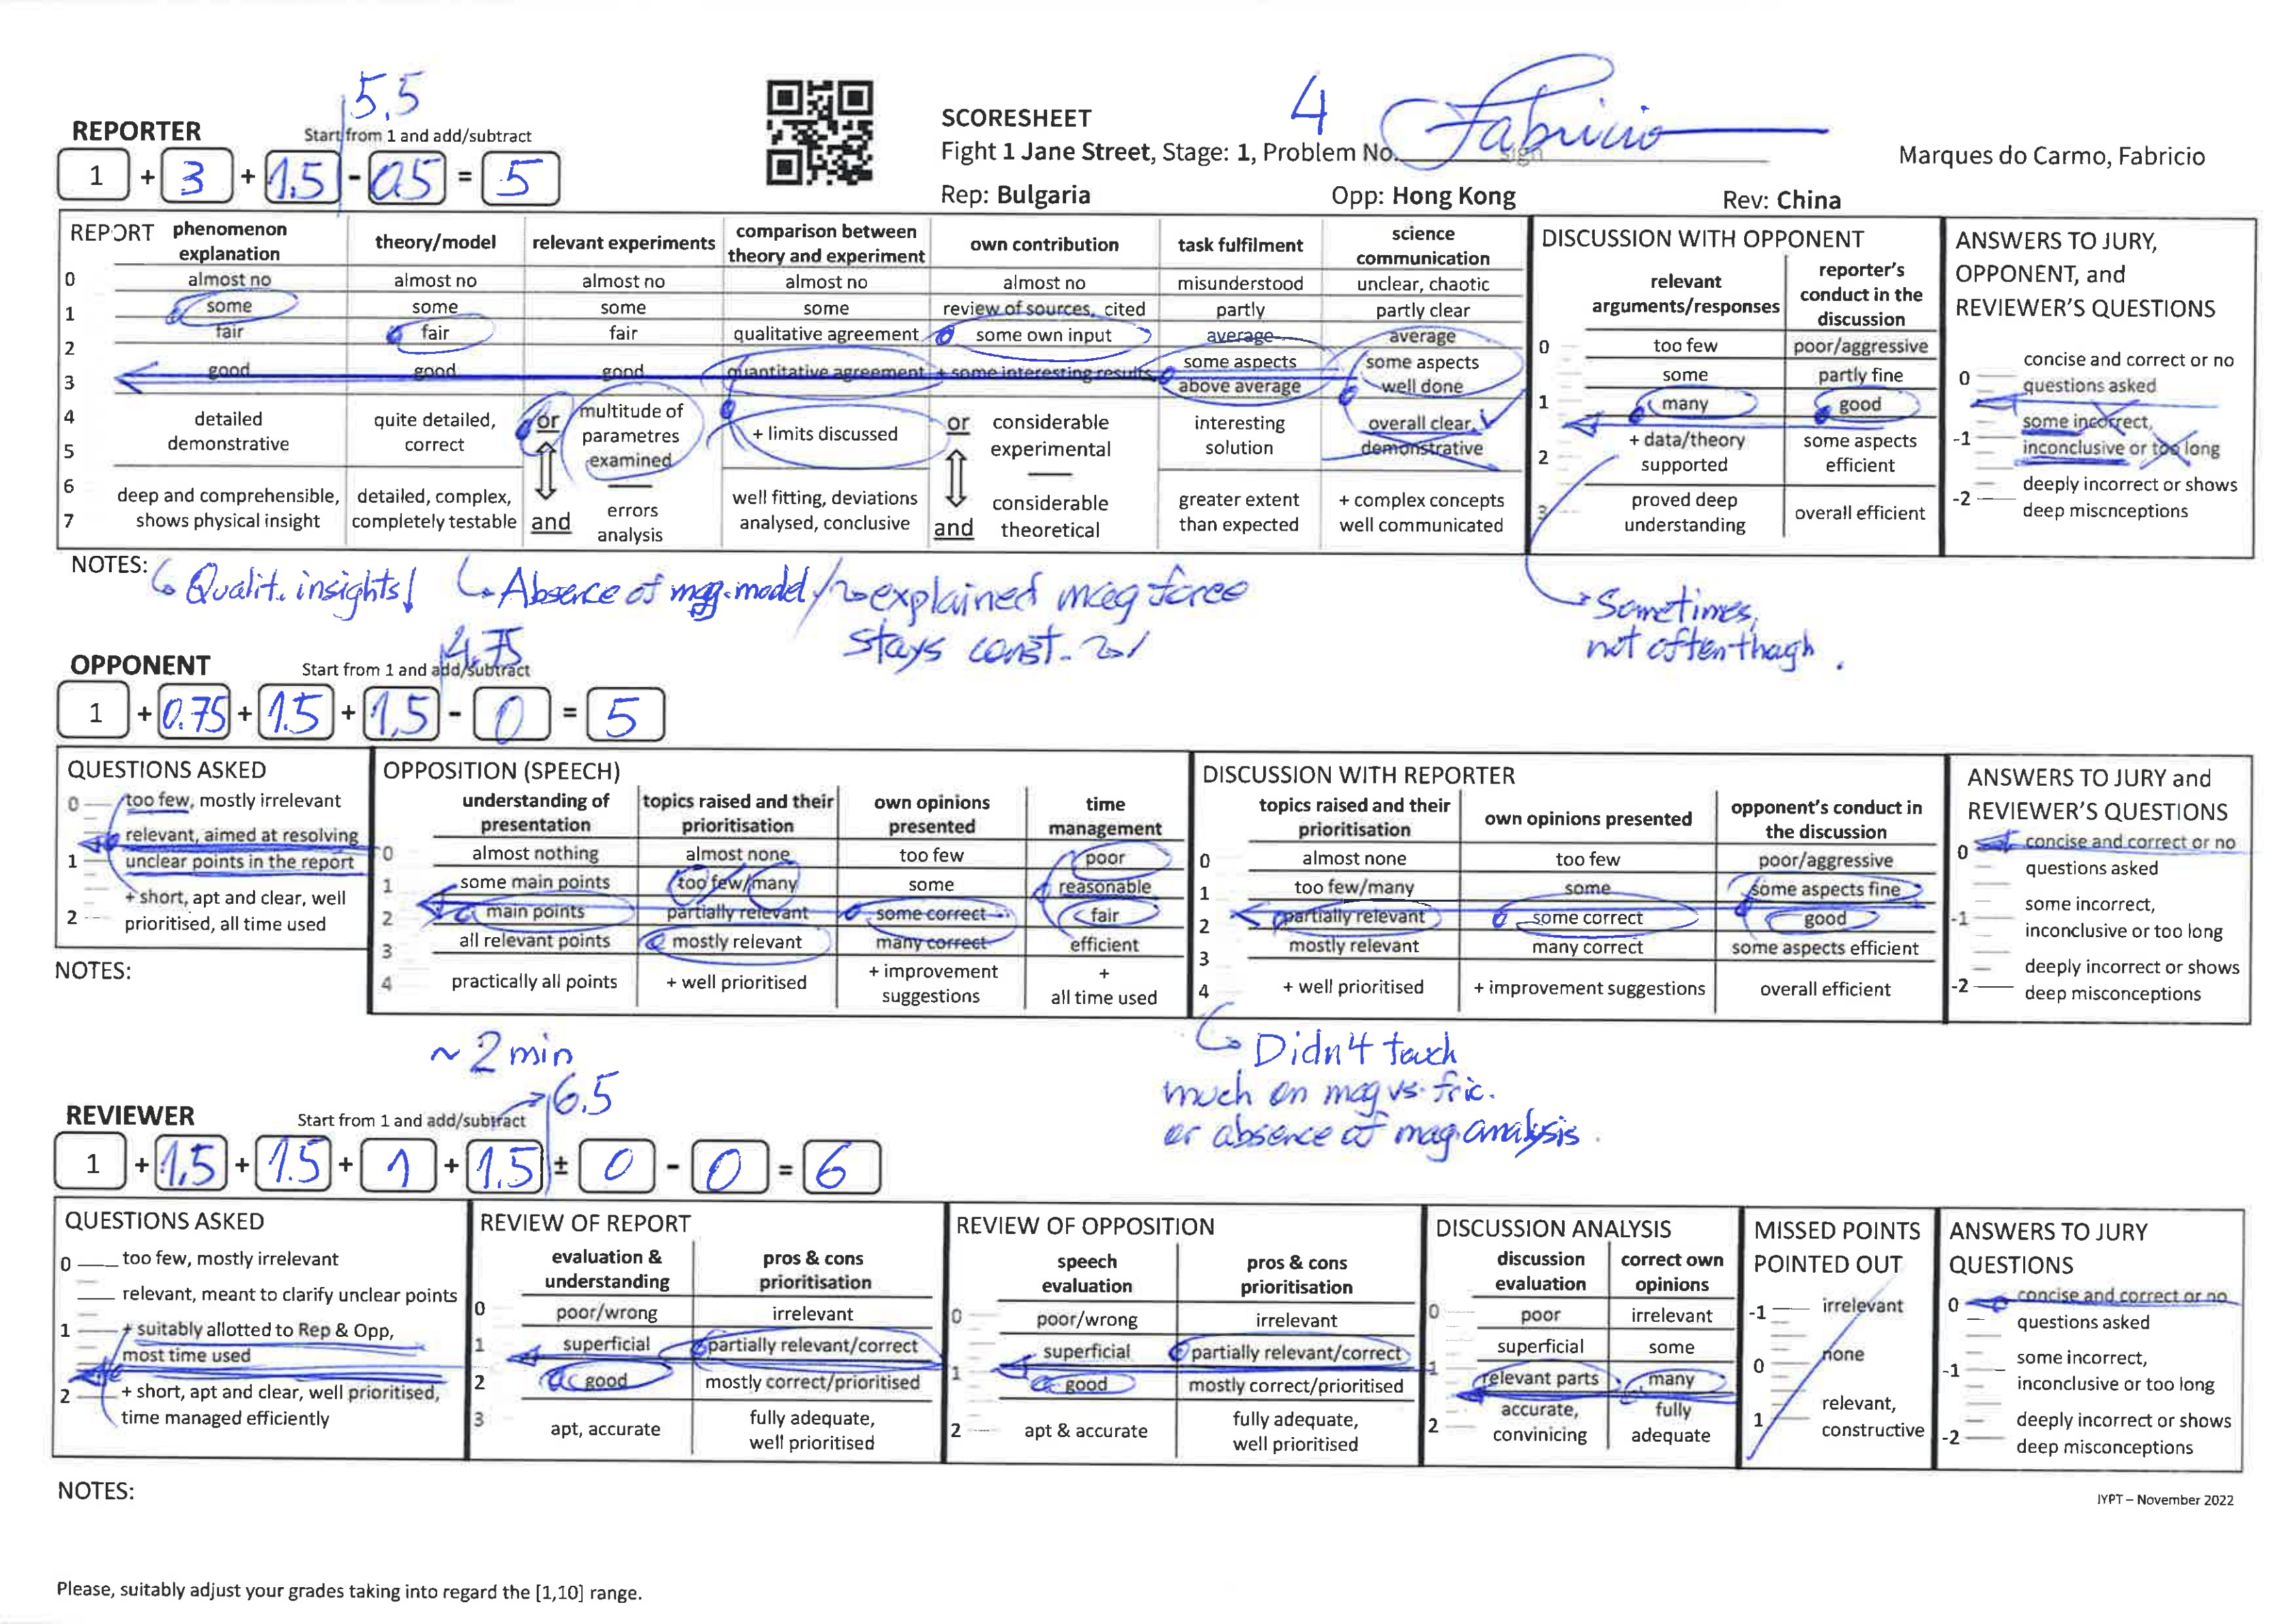 5.5
REPORTER
Start from 1 and add/subtract
1 + 3 + 1.5 - 0.5 = 5
SCORESHEET
4
Fabricio
Fight 1 Jane Street, Stage: 1, Problem No.
sign
Marques do Carmo, Fabricio
Rep: Bulgaria Opp: Hong Kong Rev: China
REPORT
phenomenon explanation
theory/model
relevant experiments
comparison between theory and experiment
own contribution
task fulfilment
science communication
0 almost no almost no almost no almost no almost no misunderstood unclear, chaotic
1 some some some some review of sources, cited partly partly clear
2 fair fair fair qualitative agreement some own input average average
3 good good good quantitative agreement + some interesting results some aspects above average some aspects well done
4
5
detailed demonstrative
quite detailed, correct
or
multitude of parametres examined
+ limits discussed
or
considerable experimental
interesting solution
overall clear, demonstrative
6
7
deep and comprehensible, shows physical insight
detailed, complex, completely testable
and
errors analysis
well fitting, deviations analysed, conclusive
and
considerable theoretical
greater extent than expected
+ complex concepts well communicated
DISCUSSION WITH OPPONENT
relevant arguments/responses
reporter's conduct in the discussion
0 too few poor/aggressive
some partly fine
1 many good
+ data/theory supported some aspects efficient
2
3 proved deep understanding overall efficient
ANSWERS TO JURY,
OPPONENT, and
REVIEWER'S QUESTIONS
0 concise and correct or no
questions asked
-1 some incorrect,
inconclusive or too long
-2 deeply incorrect or shows
deep miscnceptions
NOTES:
Qualit. insights!
Absence of mag. model / explained mag force
stays const.
Sometimes,
not often though.
4.75
OPPONENT
Start from 1 and add/subtract
1 + 0.75 + 1.5 + 1,5 - 0 = 5
QUESTIONS ASKED
0 too few, mostly irrelevant
relevant, aimed at resolving
1 unclear points in the report
+ short, apt and clear, well
2 prioritised, all time used
NOTES:
OPPOSITION (SPEECH)
understanding of presentation
topics raised and their prioritisation
own opinions presented
time management
0 almost nothing almost none too few poor
1 some main points too few/many some reasonable
2 main points partially relevant some correct fair
3 all relevant points mostly relevant many correct efficient
4 practically all points + well prioritised + improvement suggestions + all time used
DISCUSSION WITH REPORTER
topics raised and their prioritisation
own opinions presented
opponent's conduct in the discussion
0 almost none too few poor/aggressive
1 too few/many some some aspects fine
2 partially relevant some correct good
3 mostly relevant many correct some aspects efficient
4 + well prioritised + improvement suggestions overall efficient
ANSWERS TO JURY and
REVIEWER'S QUESTIONS
0 concise and correct or no
questions asked
-1 some incorrect,
inconclusive or too long
-2 deeply incorrect or shows
deep misconceptions
~ 2 min
Didn't touch
much on mag vs. fric.
or absence of mag. analysis.
6.5
REVIEWER
Start from 1 and add/subtract
1 + 1,5 + 1.5 + 1 + 1.5 ± 0 - 0 = 6
QUESTIONS ASKED
0 too few, mostly irrelevant
relevant, meant to clarify unclear points
1 + suitably allotted to Rep & Opp,
most time used
2 + short, apt and clear, well prioritised,
time managed efficiently
REVIEW OF REPORT
evaluation & understanding
pros & cons prioritisation
0 poor/wrong irrelevant
1 superficial partially relevant/correct
2 good mostly correct/prioritised
3 apt, accurate fully adequate, well prioritised
REVIEW OF OPPOSITION
speech evaluation
pros & cons prioritisation
0 poor/wrong irrelevant
superficial partially relevant/correct
1 good mostly correct/prioritised
2 apt & accurate fully adequate, well prioritised
DISCUSSION ANALYSIS
discussion evaluation
correct own opinions
0 poor irrelevant
superficial some
1 relevant parts many
2 accurate, convinicing fully adequate
MISSED POINTS
POINTED OUT
-1 irrelevant
0 none
1 relevant,
constructive
ANSWERS TO JURY
QUESTIONS
0 concise and correct or no
questions asked
-1 some incorrect,
inconclusive or too long
-2 deeply incorrect or shows
deep misconceptions
NOTES:
IYPT – November 2022
Please, suitably adjust your grades taking into regard the [1,10] range.